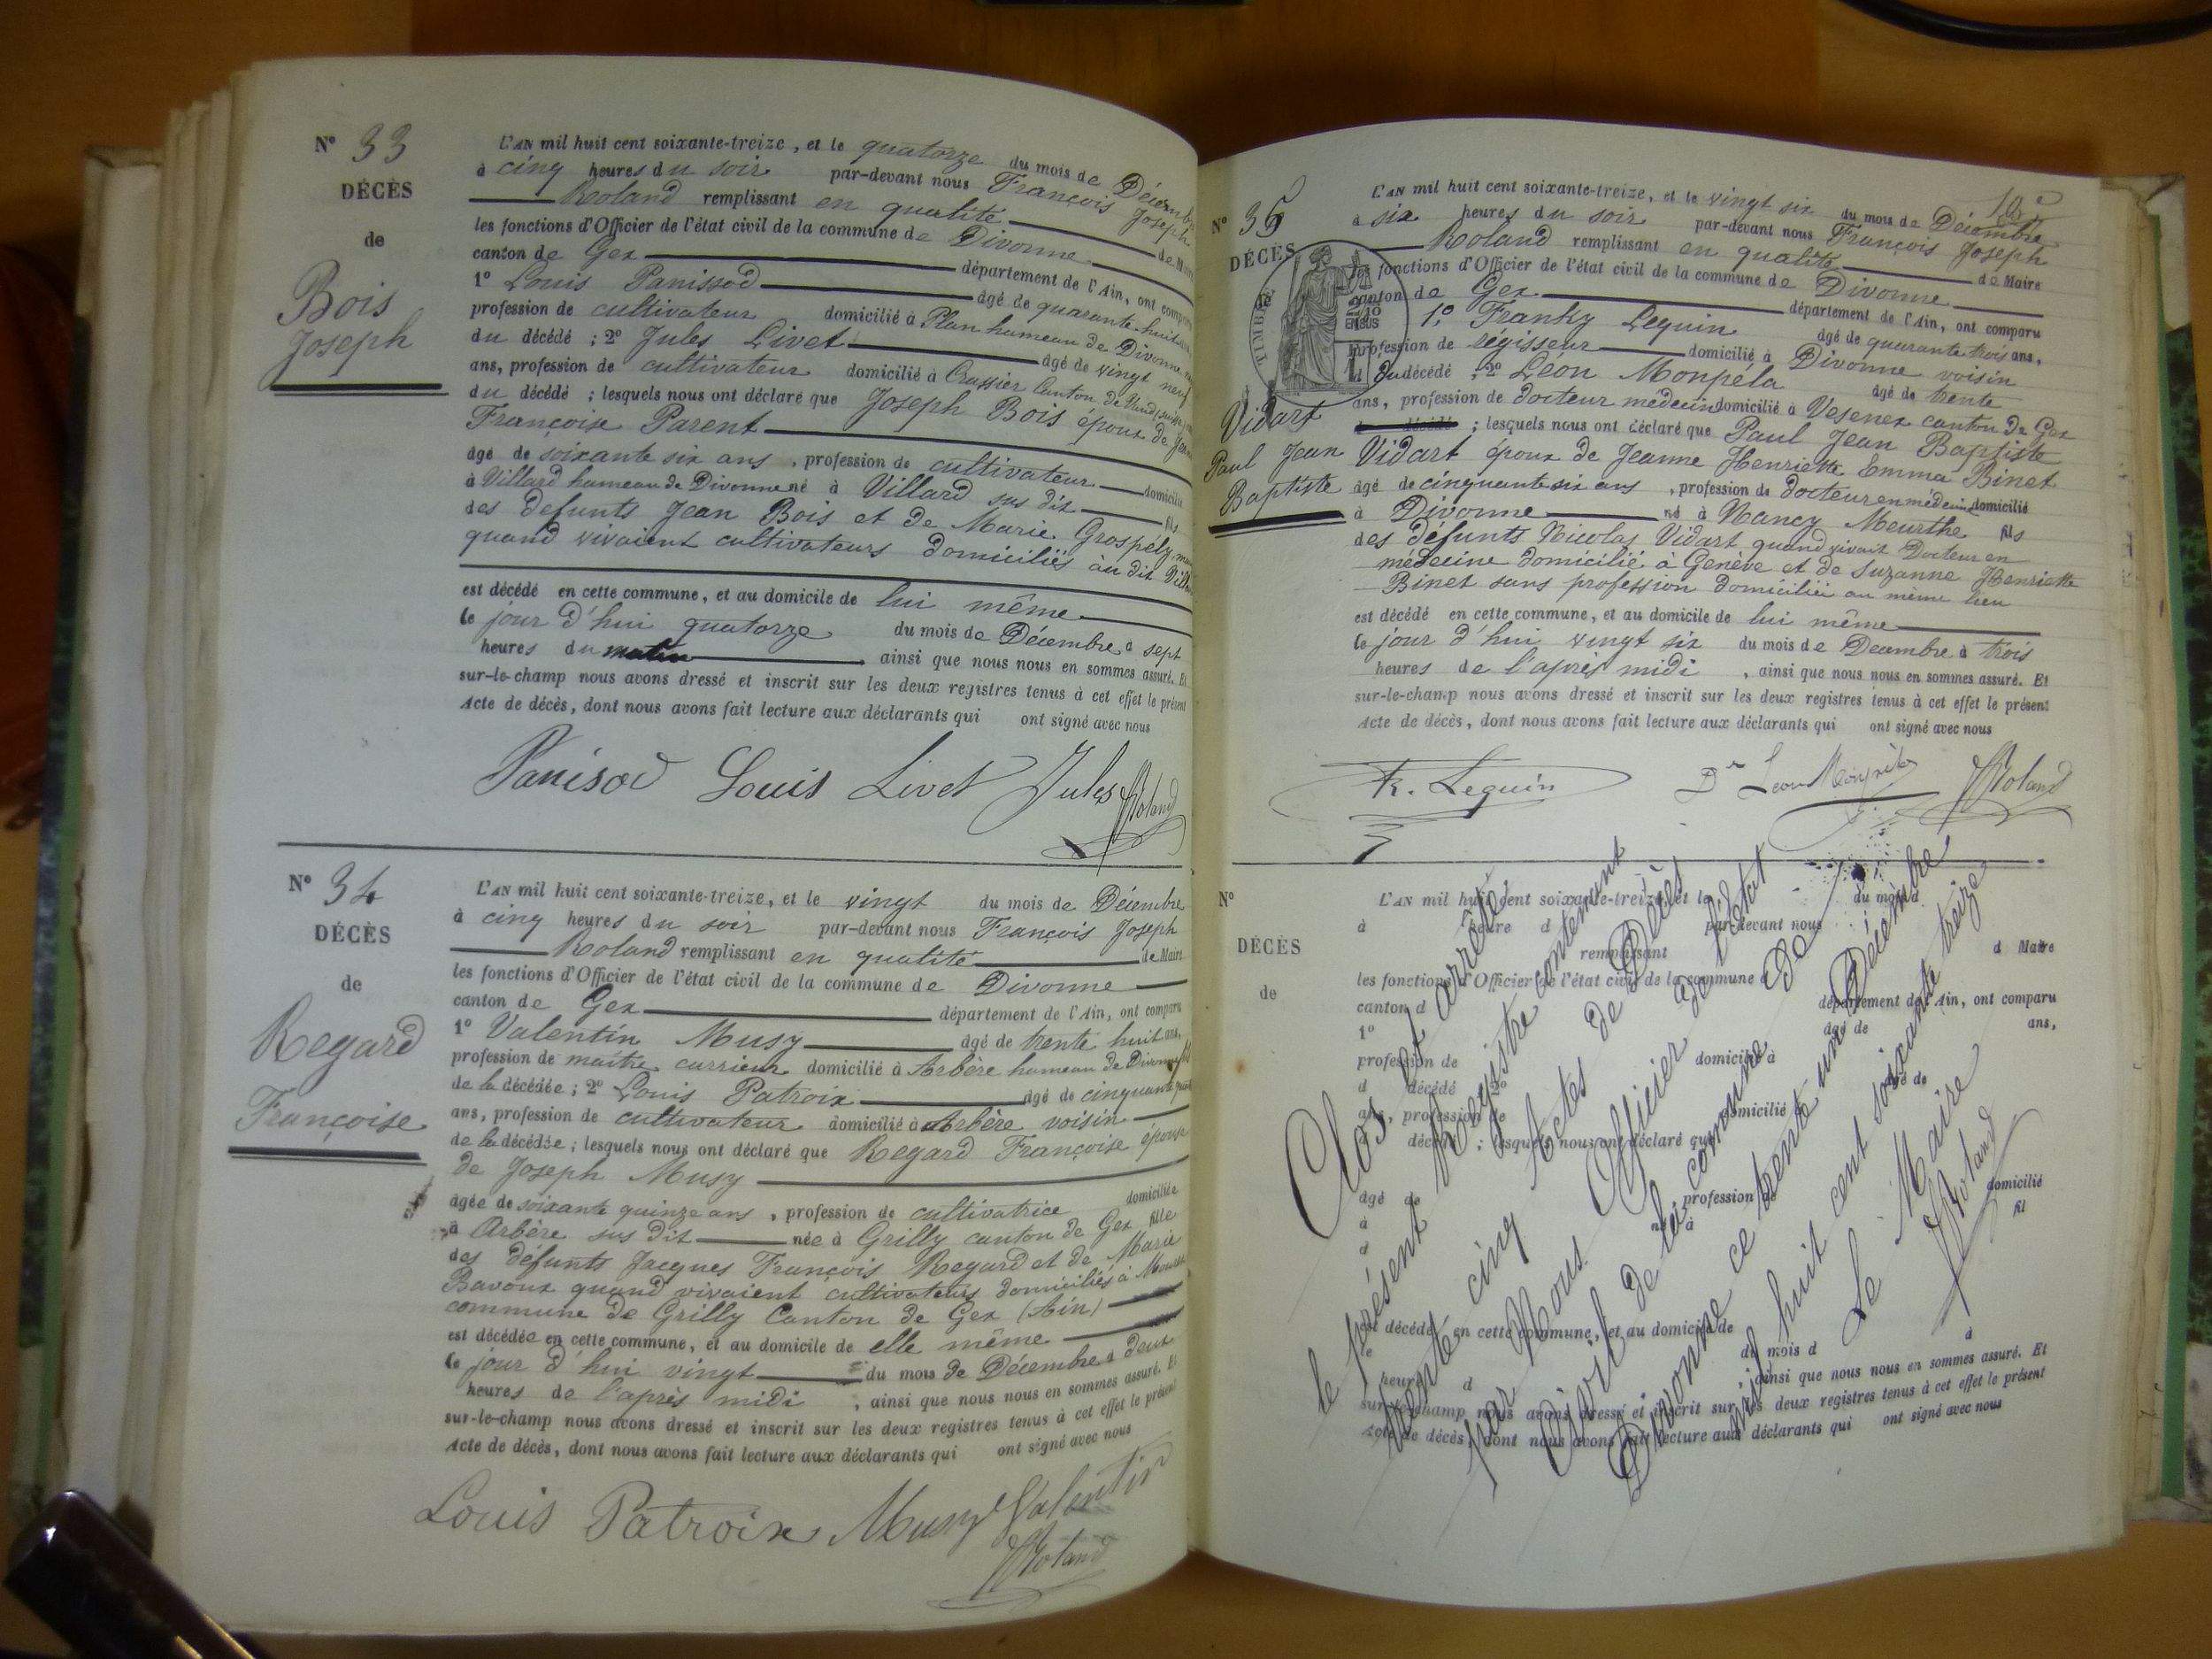 N° 33
DÉCÈS
de
Bois
Joseph
L'AN mil huit cent soixante-treize, et le quatorze du mois de Décembre
à cinq heures du soir par-devant nous François Joseph
Roland remplissant en qualité de Maire
les fonctions d'Officier de l'état civil de la commune de Divonne
canton de Gex département de l'Ain, ont comparu
1° Louis Panissod âgé de quarante huit
profession de cultivateur domicilié à Plan hameau de Divonne
du décédé ; 2° Jules Livet âgé de vingt neuf
ans, profession de cultivateur domicilié à Crassier Canton de Vaud (Suisse)
du décédé ; lesquels nous ont déclaré que Joseph Bois époux de
Françoise Parent
âgé de soixante six ans , profession de cultivateur domicilié
à Villard hameau de Divonne né à Villard sus dit fils
des defunts Jean Bois et de Marie Grospély
quand vivaient cultivateurs domiciliés au dit
est décédé en cette commune, et au domicile de lui même
le jour d'hui quatorze du mois de Décembre à sept
heures du matin ainsi que nous nous en sommes assuré. Et
sur-le-champ nous avons dressé et inscrit sur les deux registres tenus à cet effet le présent
Acte de décès, dont nous avons fait lecture aux déclarants qui ont signé avec nous
Panisod Louis Livet Jules
Roland
N° 34
DÉCÈS
de
Regard
Françoise
L'AN mil huit cent soixante-treize, et le vingt du mois de Décembre
à cinq heures du soir par-devant nous François Joseph
Roland remplissant en qualité de Maire
les fonctions d'Officier de l'état civil de la commune de Divonne
canton de Gex département de l'Ain, ont comparu
1° Valentin Musy âgé de trente huit ans,
profession de maître carrieur domicilié à Arbère hameau de Divonne
de la décédée ; 2° Louis Patroix âgé de cinquante
ans, profession de cultivateur domicilié à Arbère voisin
de la décédée ; lesquels nous ont déclaré que Regard Françoise épouse
de Joseph Musy
âgée de soixante quinze ans , profession de cultivatrice domiciliée
à Arbère sus dit née à Grilly canton de Gex fille
des défunts Jacques François Regard et de Marie
Bavoux quand vivaient cultivateurs domiciliés à
commune de Grilly Canton de Gex (Ain)
est décédée en cette commune, et au domicile de elle même
le jour d'hui vingt du mois de Décembre à deux
heures de l'après midi , ainsi que nous nous en sommes assuré. Et
sur-le-champ nous avons dressé et inscrit sur les deux registres tenus à cet effet le présent
Acte de décès, dont nous avons fait lecture aux déclarants qui ont signé avec nous
Louis Patroix Musy Valentin
Roland
N° 35
DÉCÈS
de
Vidart
Paul Jean
Baptiste
TIMBRE
L'AN mil huit cent soixante-treize, et le vingt six du mois de Décembre
à six heures du soir par-devant nous François Joseph
Roland remplissant en qualité de Maire
les fonctions d'Officier de l'état civil de la commune de Divonne
canton de Gex département de l'Ain, ont comparu
1° Franky Lequin âgé de quarante trois ans,
profession de régisseur domicilié à Divonne voisin
du décédé ; 2° Léon Monpéla âgé de trente
ans, profession de docteur médecin domicilié à Vesenex canton de Gex
décédé ; lesquels nous ont déclaré que Paul Jean Baptiste
Vidart époux de Jeanne Henriette Emma Binet
âgé de cinquante six ans , profession de docteur en médecine domicilié
à Divonne né à Nancy Meurthe fils
des défunts Nicolas Vidart quand vivait Docteur en
médecine domicilié à Genève et de Suzanne Henriette
Binet sans profession domiciliée au même lieu
est décédé en cette commune, et au domicile de lui même
le jour d'hui vingt six du mois de Decembre à trois
heures de l'après midi , ainsi que nous nous en sommes assuré. Et
sur-le-champ nous avons dressé et inscrit sur les deux registres tenus à cet effet le présent
Acte de décès, dont nous avons fait lecture aux déclarants qui ont signé avec nous
Lequin Dr Leon Roland
N°
DÉCÈS
de
L'AN mil huit cent soixante-treize, et le du mois d
à heure d par-devant nous
remplissant d Maire
les fonctions d'Officier de l'état civil de la commune d
canton d département de l'Ain, ont comparu
1° âgé de ans,
profession de domicilié à
d décédé 2° âgé de
ans, profession de domicilié
décédé ; lesquels nous ont déclaré que
âgé de profession de domicilié
à né à fil
d
est décédé en cette commune, et au domicile de
le du mois d à
heure d , ainsi que nous nous en sommes assuré. Et
sur-le-champ nous avons dressé et inscrit sur les deux registres tenus à cet effet le présent
Acte de décès, dont nous avons fait lecture aux déclarants qui ont signé avec nous
Clos et arrêté
le présent Registre contenant
trente cinq Actes de Décès
par Nous Officier de l'état
Civil de la commune de
Divonne ce trente un Décembre
mil huit cent soixante treize
Le Maire
Roland